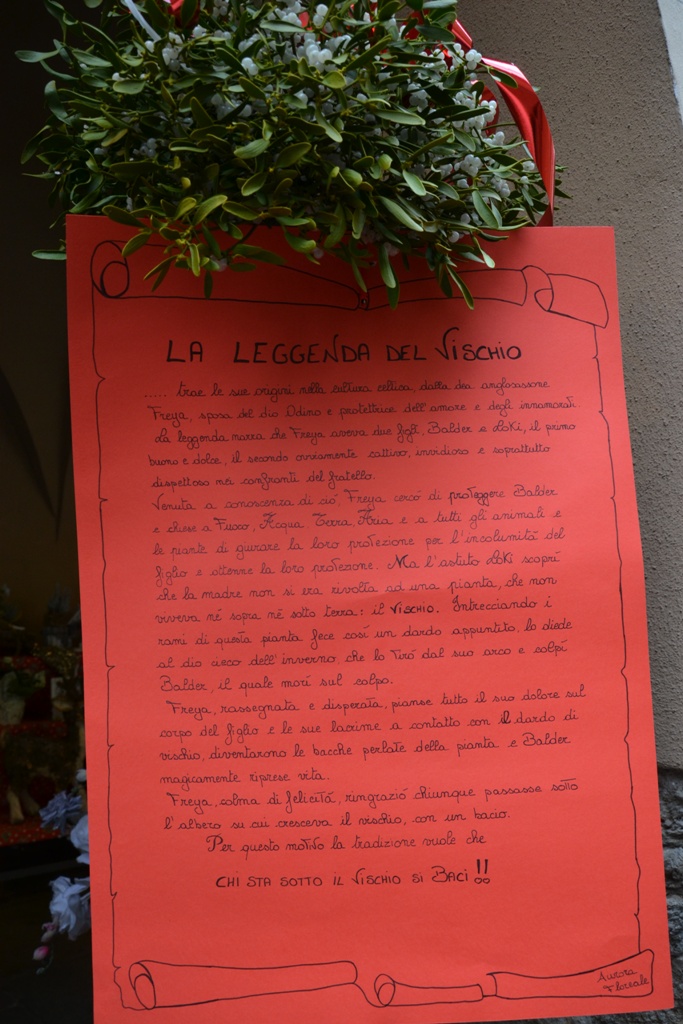 LA LEGGENDA DEL VISCHIO
..... trae le sue origini nella cultura celtica, dalla dea anglosassone
Freya, sposa del dio Odino e protettrice dell'amore e degli innamorati.
La leggenda narra che Freya aveva due figli, Balder e Loki, il primo
buono e dolce, il secondo ovviamente cattivo, invidioso e soprattutto
dispettoso nei confronti del fratello.
Venuta a conoscenza di ciò, Freya cercò di proteggere Balder
e chiese a Fuoco, Acqua, Terra, Aria e a tutti gli animali e
le piante di giurare la loro protezione per l'incolumità del
figlio e ottenne la loro protezione. Ma l'astuto Loki scoprì
che la madre non si era rivolta ad una pianta, che non
viveva né sopra né sotto terra: il VISCHIO. Intrecciando i
rami di questa pianta fece così un dardo appuntito, lo diede
al dio cieco dell'inverno, che lo tirò dal suo arco e colpì
Balder, il quale morì sul colpo.
Freya, rassegnata e disperata, pianse tutto il suo dolore sul
corpo del figlio e le sue lacrime a contatto con il dardo di
vischio, diventarono le bacche perlate della pianta e Balder
magicamente riprese vita.
Freya, colma di felicità, ringraziò chiunque passasse sotto
l'albero su cui cresceva il vischio, con un bacio.
Per questo motivo la tradizione vuole che
CHI STA SOTTO IL VISCHIO SI BACI!!
Aurora
Floreale